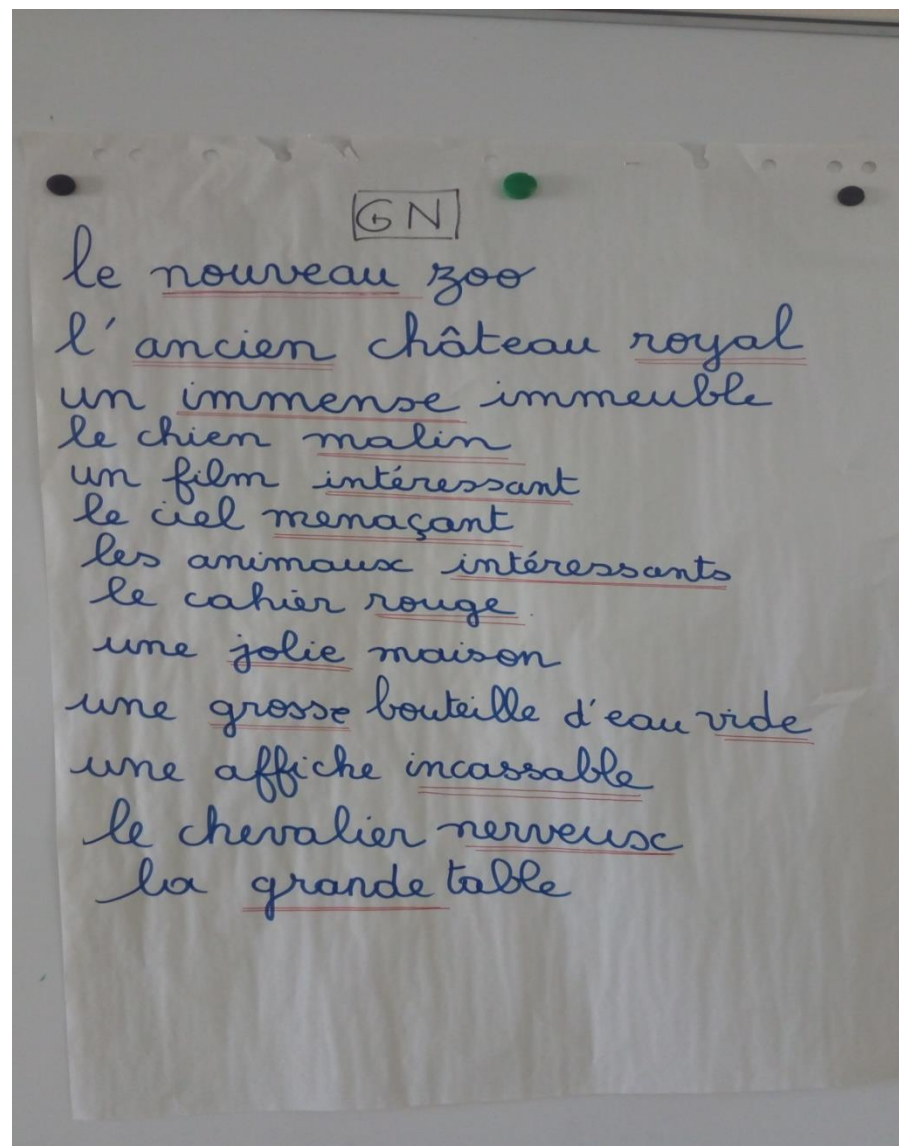 GN
le nouveau zoo
l'ancien château royal
un immense immeuble
le chien malin
un film intéressant
le ciel menaçant
les animaux intéressants
le cahier rouge.
une jolie maison
une grosse bouteille d'eau vide
une affiche incassable
le chevalier nerveux
la grande table